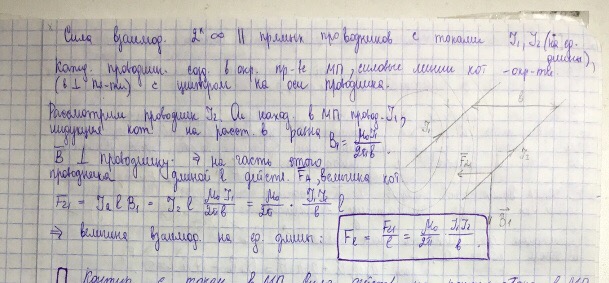 Сила взаимод. 2ˣ ∞ || прямых проводников с токами I₁, I₂ (на ед. длины)
Кажд. проводник созд. в окр. пр-ве МП, силовые линии кот - окр-ти
(в ⊥ пл-ти) с центром на оси проводника.
Рассмотрим проводник I₂. Он наход. в МП провод. I₁,
индукция кот. на расст. b равна B₁ = μ₀I₁/2πb
B⃗ ⊥ проводнику ⇒ на часть этого
проводника длиной l действ. F⃗A, величина кот.
F₂₁ = I₂ l B₁ = I₂ l μ₀ I₁/2πb = μ₀/2π · I₁I₂/b l
⇒ величина взаимод. на ед. длины: Fₑ = F₂₁/l = μ₀/2π · I₁I₂/b
b
I₁
I₂
F⃗₂₁
B⃗₁
Контур с током в МП